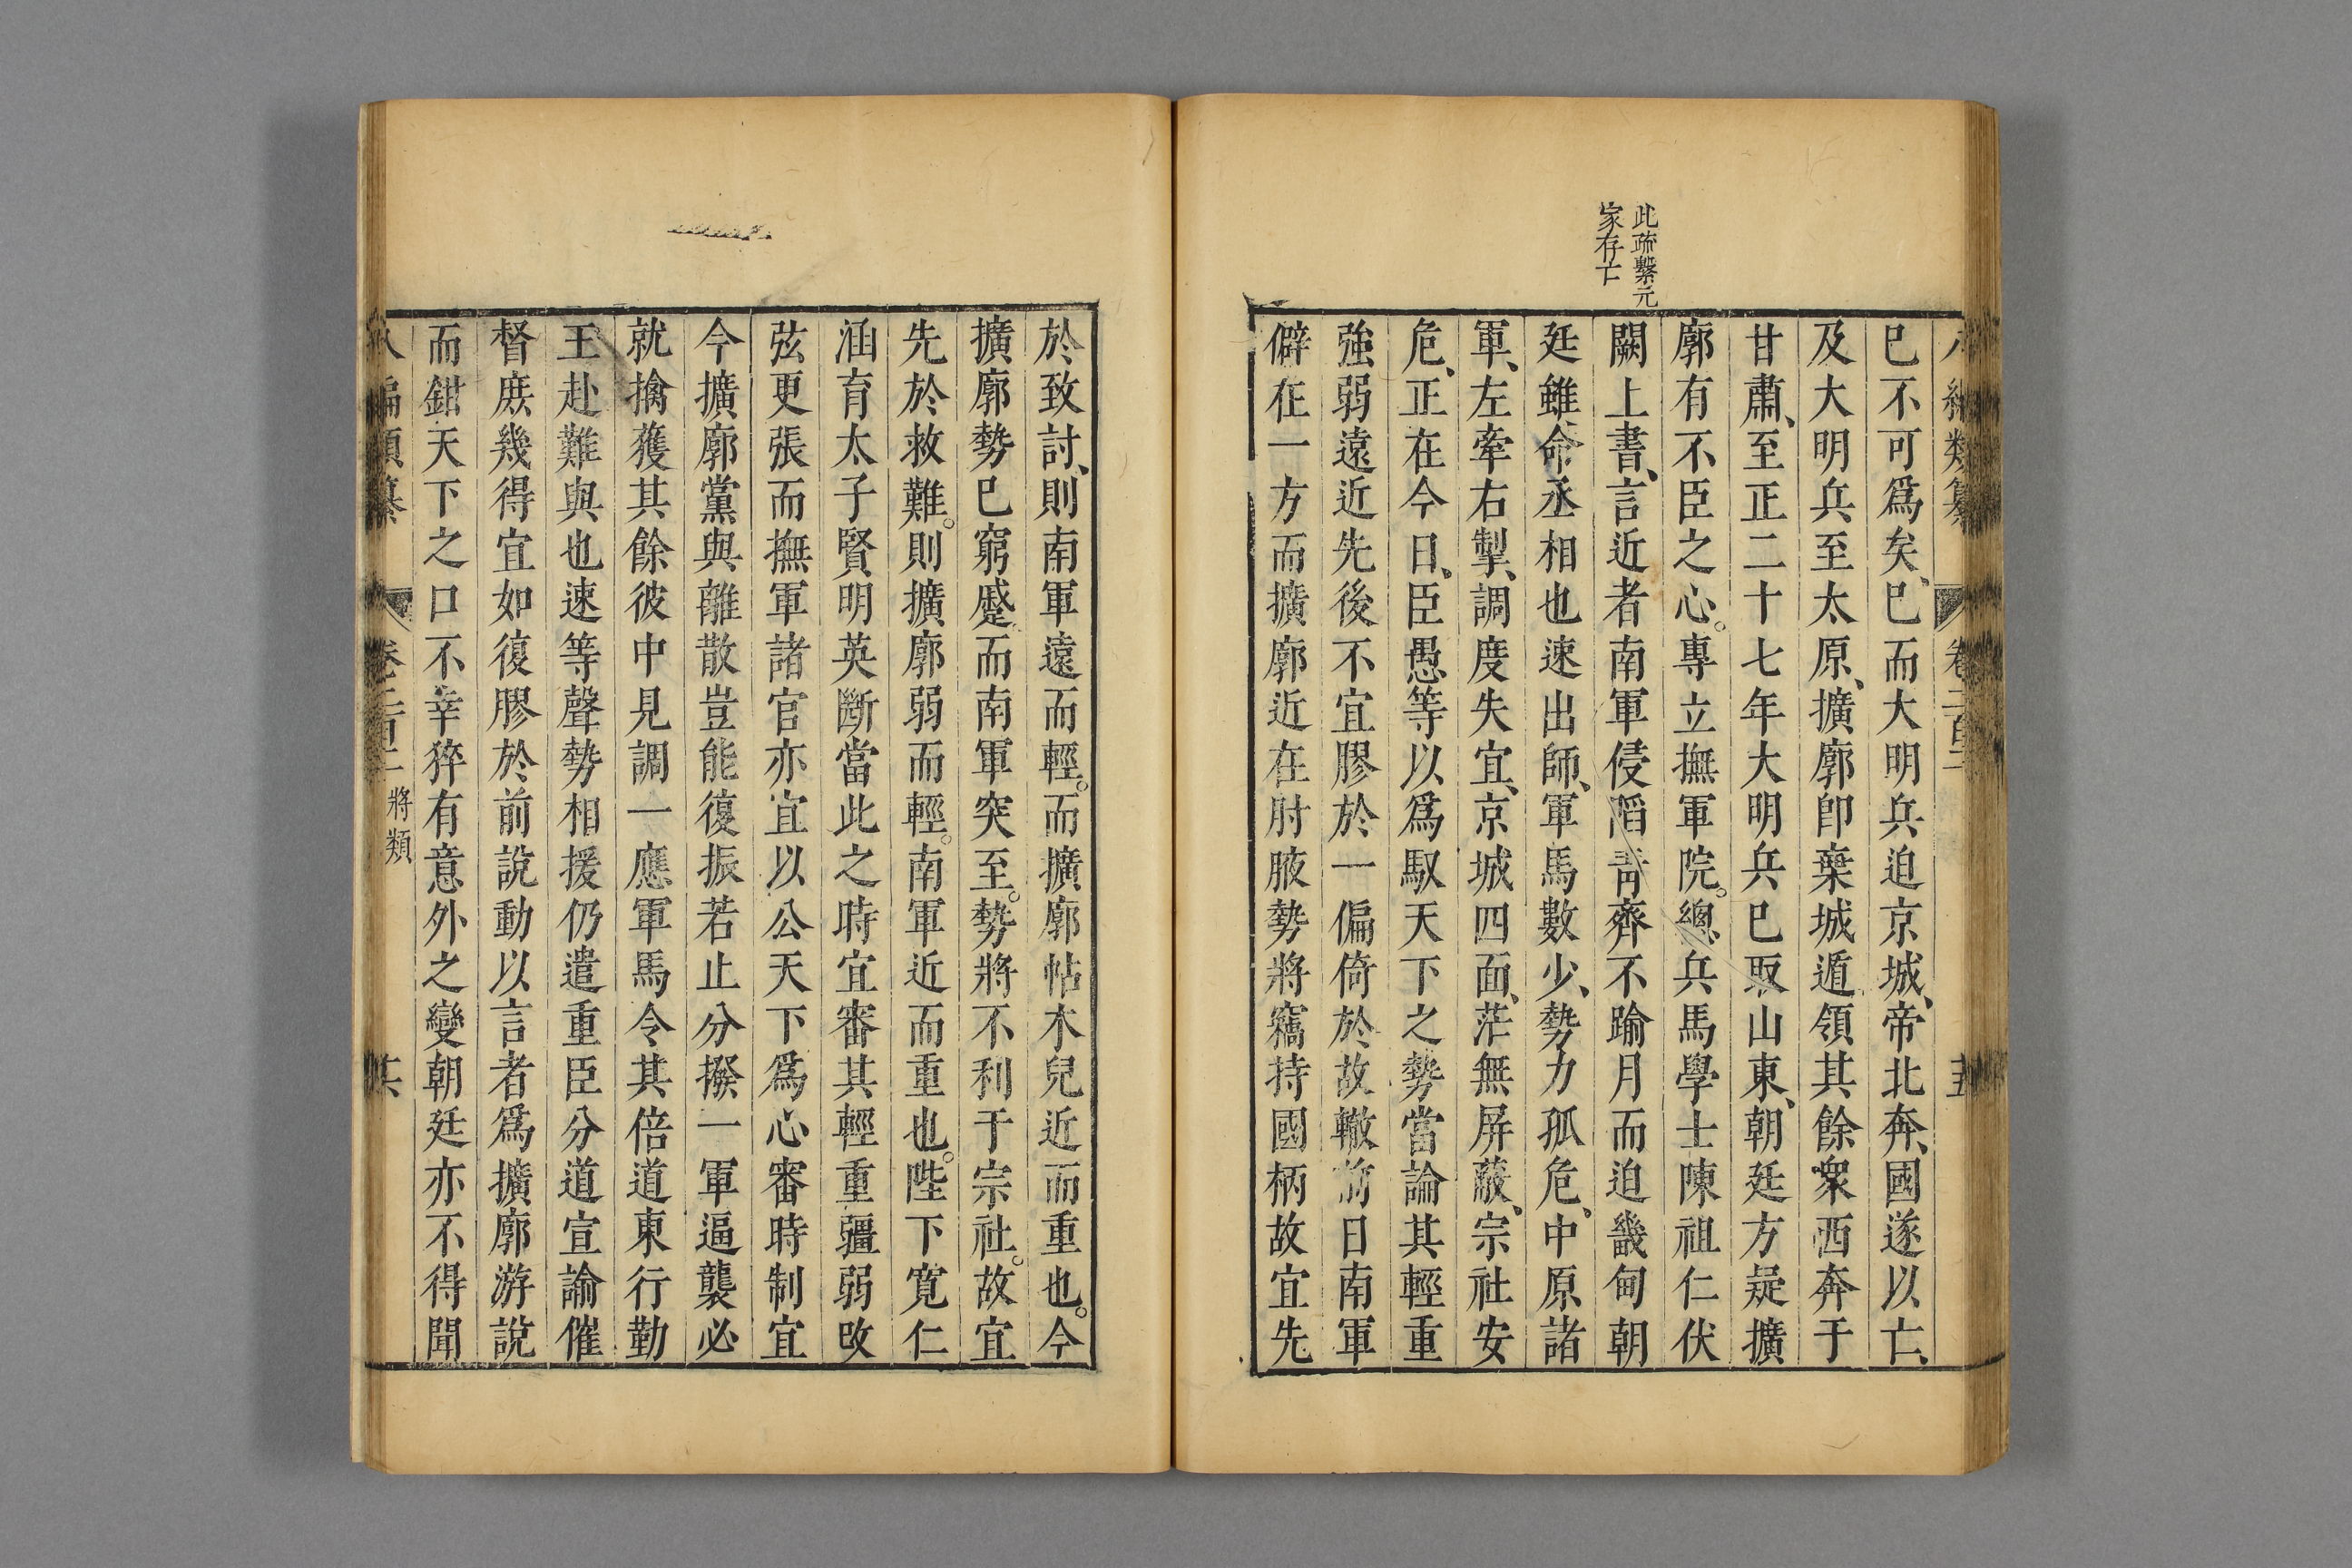 此疏繫元
家存亡
巳不可爲矣、巳而大明兵迫京城、帝北奔、國遂以亡、
及大明兵至太原、擴廓卽棄城遁領其餘衆西奔于
甘肅、至正二十七年大明兵巳取山東、朝廷方疑擴
廓有不臣之心。專立撫軍院。總兵馬學士陳祖仁伏
闕上書、言近者南軍侵陷靑齊不踰月而迫畿甸朝
廷雖命丞相也速出師、軍馬數少、勢力孤危、中原諸
軍、左牽右掣、調度失宜、京城四面、茫無屏蔽、宗社安
危、正在今日、臣愚等以爲馭天下之勢當論其輕重
強弱遠近先後不宜膠於一偏倚於故轍前日南軍
僻在一方而擴廓近在肘腋勢將竊持國柄故宜先
於致討、則南軍遠而輕。而擴廓帖木兒近而重也。今
擴廓勢巳窮蹙而南軍突至。勢將不利于宗社。故宜
先於救難。則擴廓弱而輕。南軍近而重也。陛下寬仁
涵育太子賢明英斷當此之時宜審其輕重疆弱改
弦更張而撫軍諸官亦宜以公天下爲心審時制宜
今擴廓黨與離散豈能復振若止分撥一軍逼襲必
就擒獲其餘彼中見調一應軍馬令其倍道東行勤
王赴難與也速等聲勢相援仍遣重臣分道宣諭催
督庶幾得宜如復膠於前說動以言者爲擴廓游說
而鉗天下之口不幸猝有意外之變朝廷亦不得聞
將類